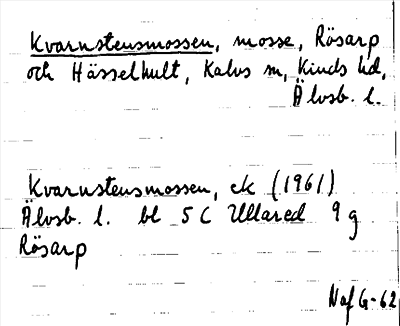 Kvarnstensmossen, mosse, Rösarp
och Hässelhult, Kalvs sn, Kinds hd,
Älvsb. l.
Kvarnstensmossen, ek (1961)
Älvsb. l. bl 5 C Ullared 9 g
Rösarp
Naf G-62